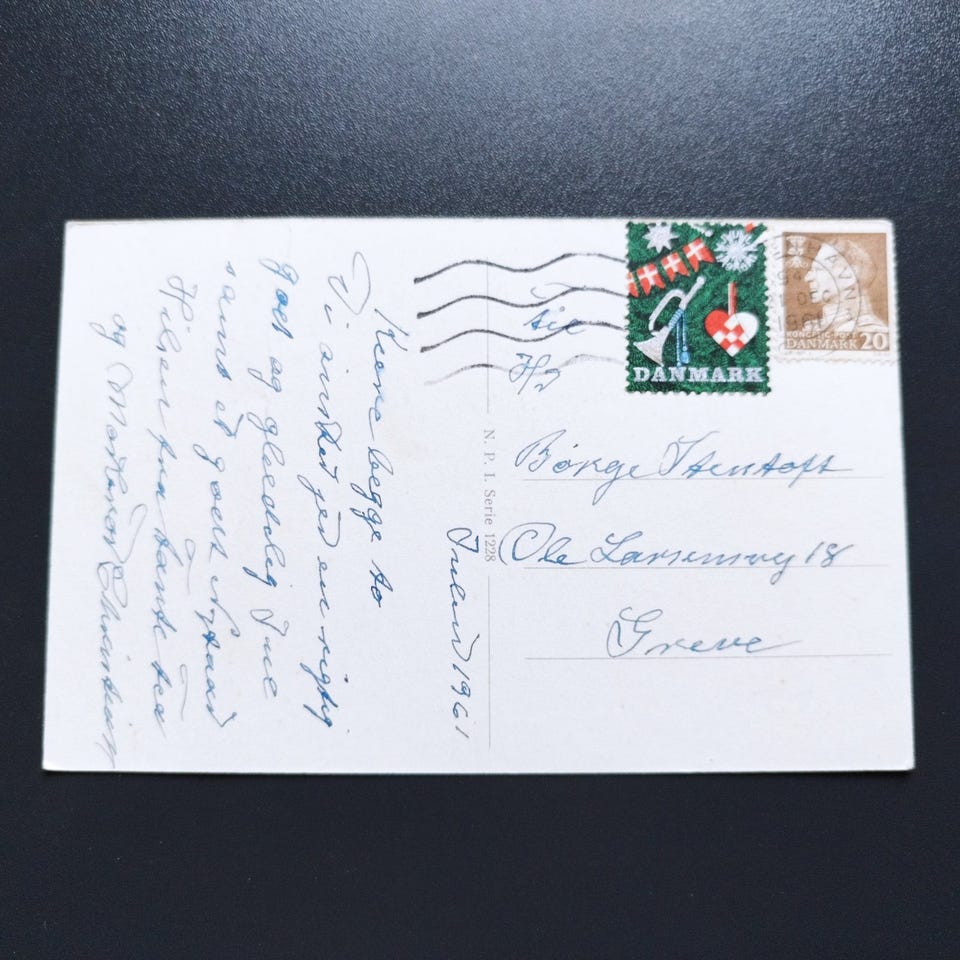 Julen 1961
Kære begge to
Vi ønsker jer en rigtig
god og glædelig Jul
samt et godt Nytaar
Hilsen fra tante Fea
og Morbror Christian
N. P. I. Serie 1228
Til
Hr
Børge Stentoft
Ole Larsensvej 18
Greve
DANMARK
DEC
1961
DANMARK 20